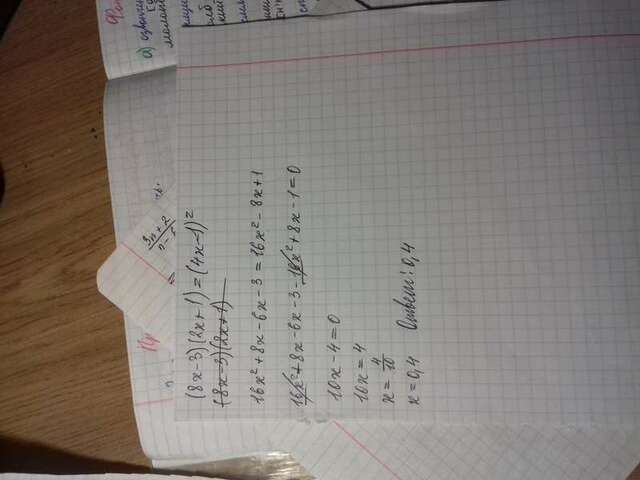 3n+2
а)
(8x-3)(2x+1)=(4x-1)²
(8x-3)(2x+1)
16x²+8x-6x-3=16x²-8x+1
16x²+8x-6x-3-16x²+8x-1=0
10x-4=0
10x=4
x=4/10
x=0,4 Ответ: 0,4